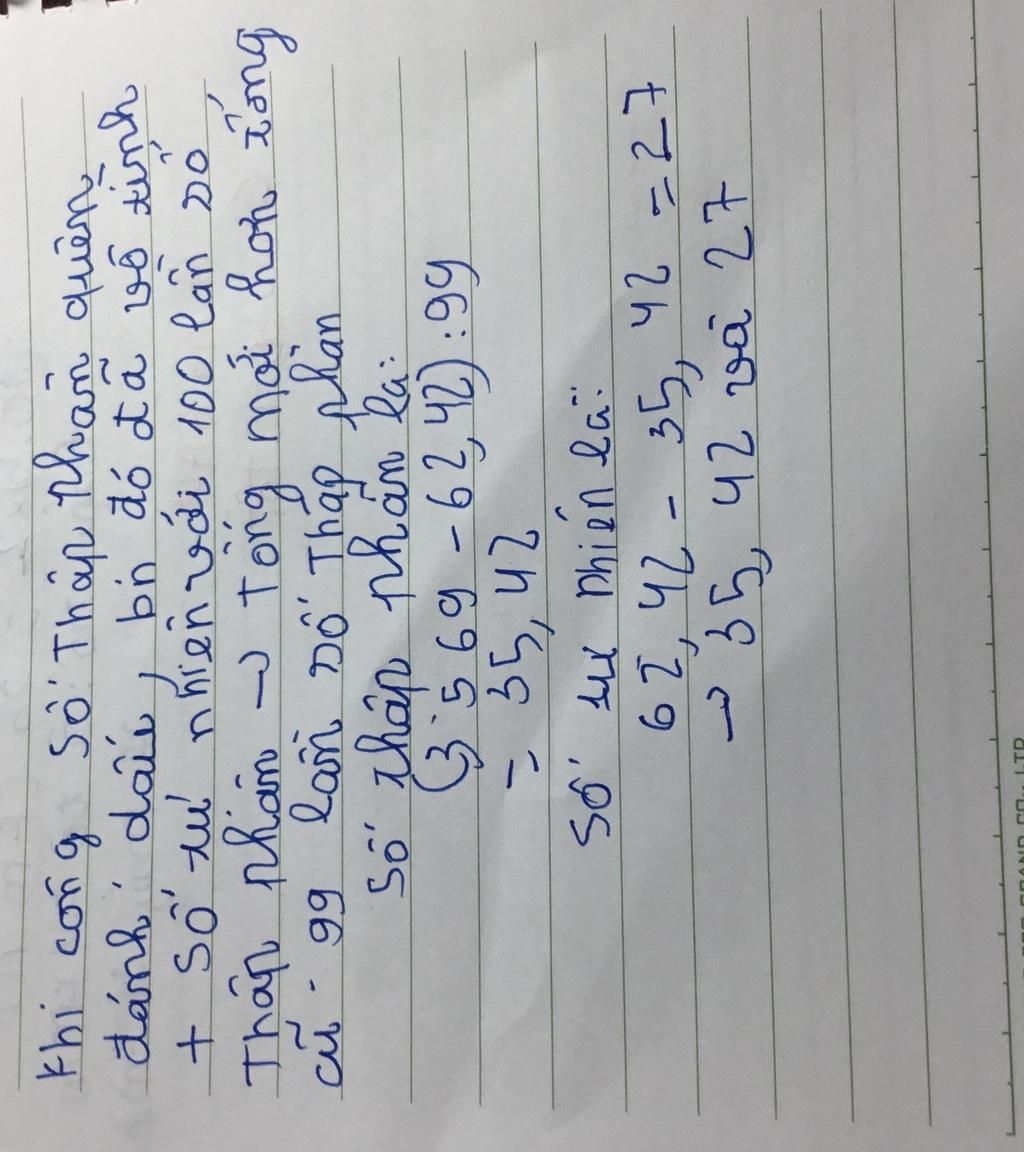 Khi cộng số Thập phân quên
đánh dấu, bn đó đã vô tình
+ Số tự nhiên với 100 lần số
Thập phân → Tổng mới hơn tổng
cũ. 99 lần số Thập phân
Số thập phân là:
(3569 - 62,42) : 99
= 35,42
Số tự nhiên là:
62,42 - 35,42 = 27
→ 35,42 và 27
GRAND CO., LTD